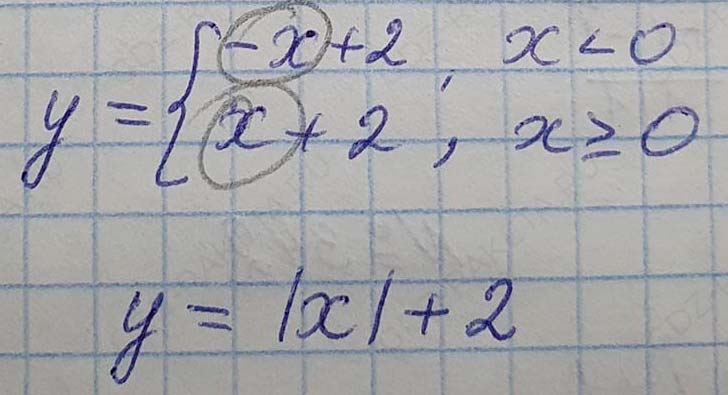 y = { -x + 2, x < 0
x + 2, x ≥ 0
y = |x| + 2